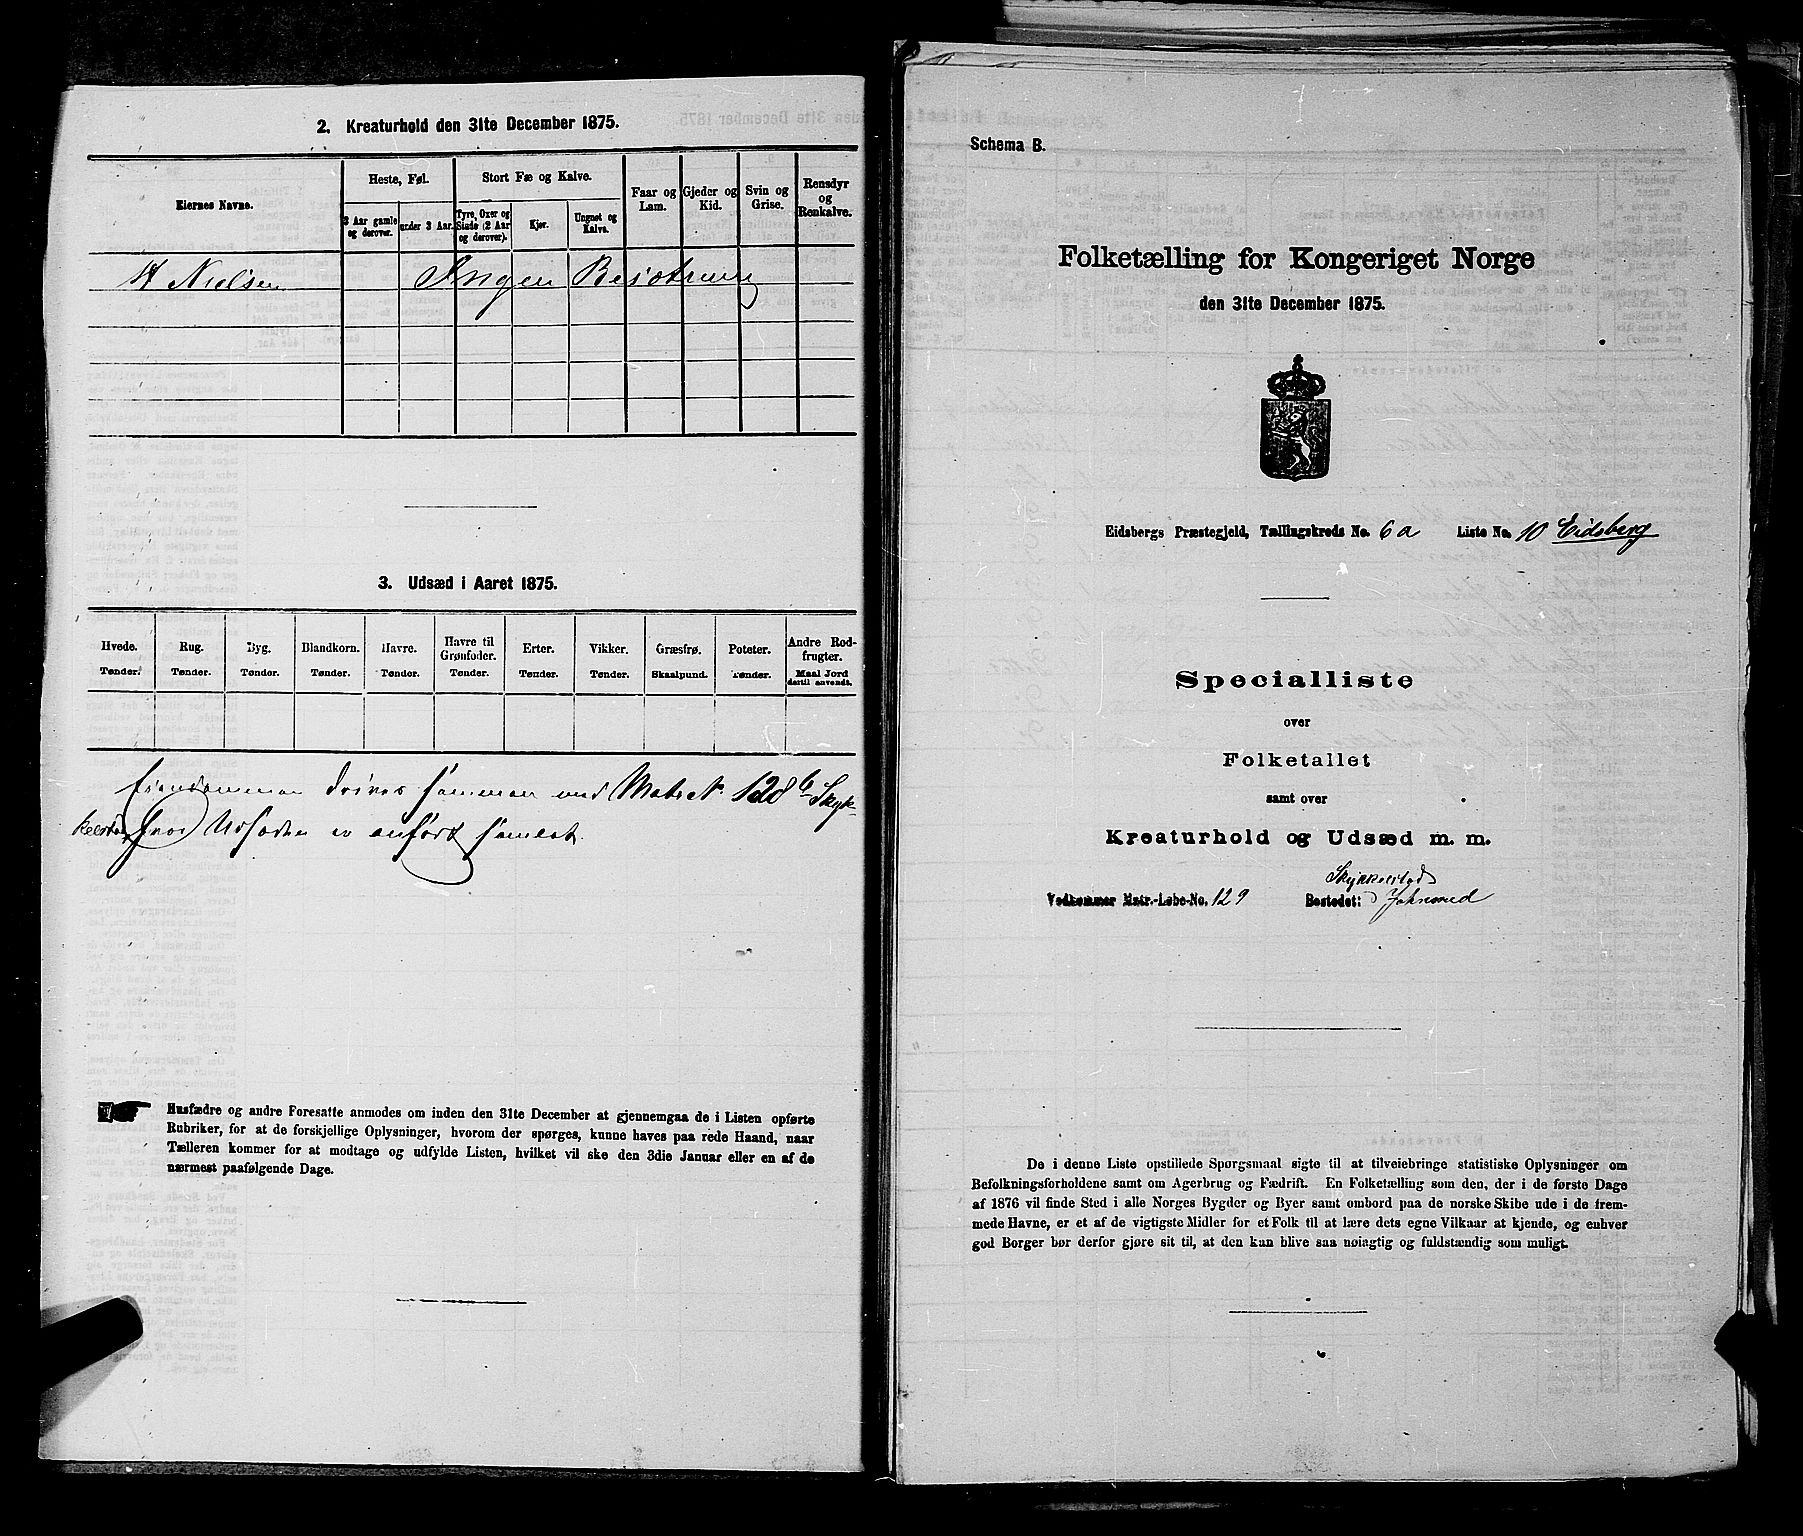 2. Kreaturhold den 31te December 1875.
Eiernes Navne.
Heste, Føl.
Stort Fæ og Kalve.
Faar og Lam.
Gjeder og Kid.
Svin og Grise.
Rensdyr og Renkalve.
3 Aar gamle og derover.
under 3 Aar.
Tyre, Oxer og Stude (2 Aar og derover).
Kjør.
Ungnøt og Kalve.
H Nielsen Ingen Besætning
3. Udsæd i Aaret 1875.
Hvede. Rug. Byg. Blandkorn. Havre. Havre til Grønfoder. Erter. Vikker. Græsfrø. Poteter. Andre Rodfrugter.
Tønder. Tønder. Tønder. Tønder. Tønder. Tønder. Tønder. Tønder. Skaalpund. Tønder. Maal Jord dertil anvendt.
Eiendommen drives sammen med Matr N. 128 b Skyk-
kelstad hvor Udsæden er anført samlet.
Husfædre og andre Foresatte anmodes om inden den 31te December at gjennemgaa de i Listen opførte
Rubriker, for at de forskjellige Oplysninger, hvorom der spørges, kunne haves paa rede Haand, naar
Tælleren kommer for at modtage og udfylde Listen, hvilket vil ske den 3die Januar eller en af de
nærmest paafølgende Dage.
Schema B.
Folketælling for Kongeriget Norge
den 31te December 1875.
Eidsbergs Præstegjeld, Tællingskreds No. 6a Liste No. 10 Eidsberg
Specialliste
over
Folketallet
samt over
Kreaturhold og Udsæd m. m.
Skykkelstad
Vedkommer Matr.-Løbe-No. 129 Bostedet:
De i denne Liste opstillede Spørgsmaal sigte til at tilveiebringe statistiske Oplysninger om
Befolkningsforholdene samt om Agerbrug og Fædrift. En Folketælling som den, der i de første Dage
af 1876 vil finde Sted i alle Norges Bygder og Byer samt ombord paa de norske Skibe ude i de frem-
mede Havne, er et af de vigtigste Midler for et Folk til at lære dets egne Vilkaar at kjende, og enhver
god Borger bør derfor gjøre sit til, at den kan blive saa nøiagtig og fuldstændig som muligt.